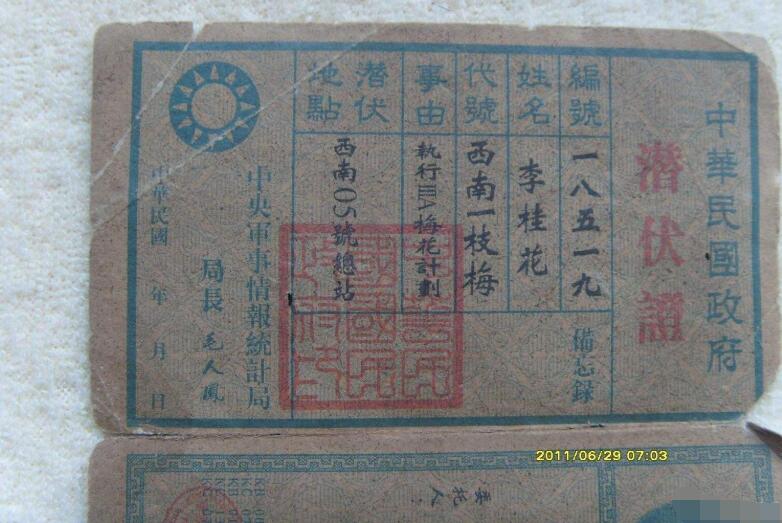 中華民國政府
潛伏證
編號 一八五一九
備忘錄
姓名 李桂花
代號 西南一枝梅
事由 執行IIIA梅花計劃
潛伏
地點
西南05號總站
中央軍事情報統計局
局長 毛人鳳
中華民國 年 月 日
委托人:
2011/06/29 07:03